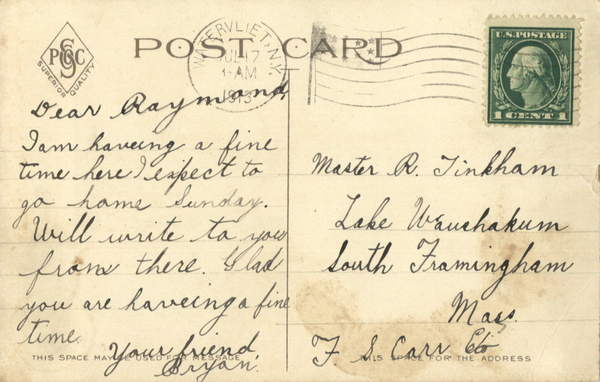 PSGC
SUPERIOR QUALITY
POST CARD
WATERVLIET, N.Y.
JUL 17
AM
1913
U.S. POSTAGE
1 CENT 1
Dear Raymond,
I am haveing a fine
time here I expect to
go home Sunday.
Will write to you
from there. Glad
you are haveing a fine
time.
Your friend,
Bryan.
THIS SPACE MAY BE USED FOR MESSAGE
Master R. Tinkham
Lake Waushakum
South Framingham
Mass.
F S Carr Cto
THIS SPACE FOR THE ADDRESS